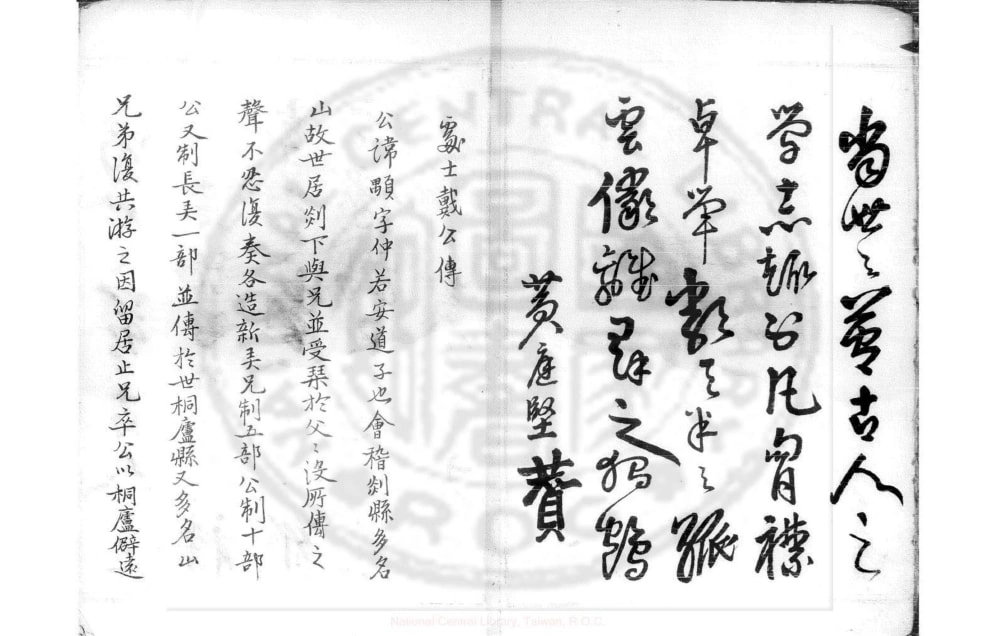 當世之古人之
学志趣不凡胷襟
卓犖
雲離群之獨鶴
黄庭堅贊
處士戴公傳
公諱顒字仲若安道子也會稽剡縣多名
山故世居剡下與兄並受琹於父〻沒所傳之
聲不忍復奏各造新弄兄制五部公制十部
公又制長弄一部並傳於世桐廬縣又多名山
兄弟復共游之因留居止兄卒公以桐廬僻遠
National Central Library, Taiwan, R.O.C.